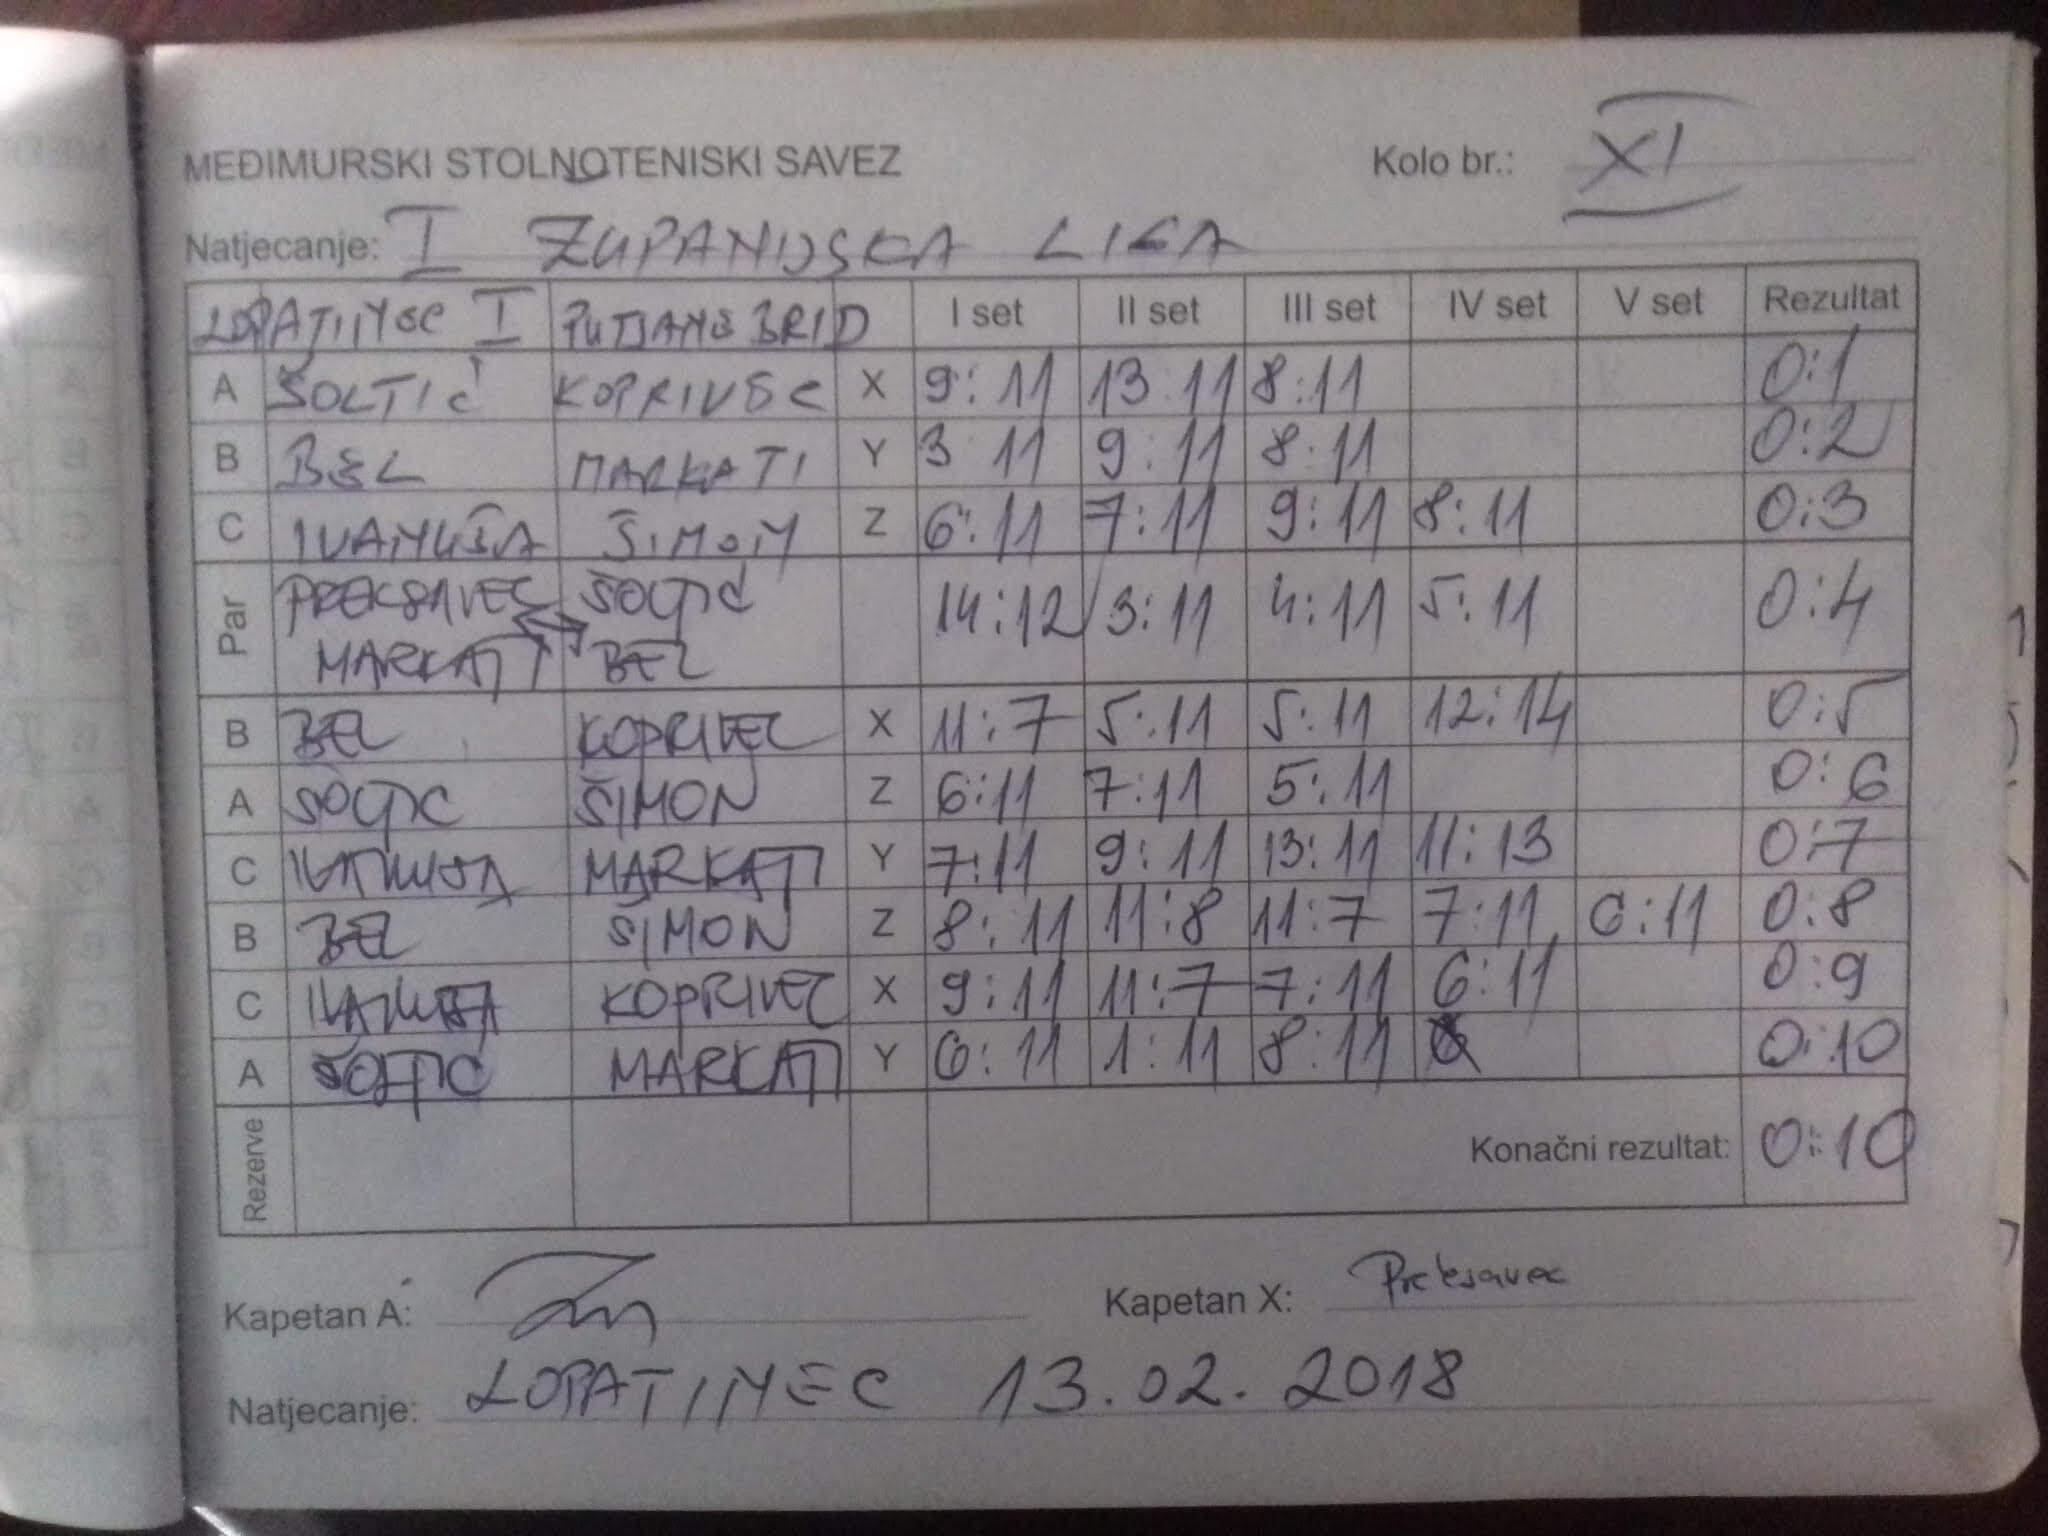 MEĐIMURSKI STOLNOTENISKI SAVEZ Kolo br.: XI
Natjecanje: I ŽUPANIJSKA LIGA
LOPATINEC I PUTJANE BRID I set II set III set IV set V set Rezultat
A ŠOLTIĆ KOPRIVEC X 9:11 13 11 8:11 0:1
B BEL MARKATI Y 3 11 9:11 8:11 0:2
C IVANUŠA ŠIMON Z 6:11 7:11 9:11 8:11 0:3
Par PREKSAVEC ŠOLTIĆ 14:12 3:11 4:11 5:11 0:4
MARKATI BEL
B BEL KOPRIVEC X 11:7 5:11 5:11 12:14 0:5
A ŠOLTIC ŠIMON Z 6:11 7:11 5:11 0:6
C IVANUŠA MARKATI Y 7:11 9:11 13:11 11:13 0:7
B BEL ŠIMON Z 8:11 11:8 11:7 7:11 6:11 0:8
C IVANUŠA KOPRIVEC X 9:11 11:7 7:11 6:11 0:9
A ŠOLTIC MARKATI Y 6:11 1:11 8:11 0:10
Rezerve Konačni rezultat: 0:10
Kapetan A: Kapetan X: Preksavec
Natjecanje: LOPATINEC 13.02.2018